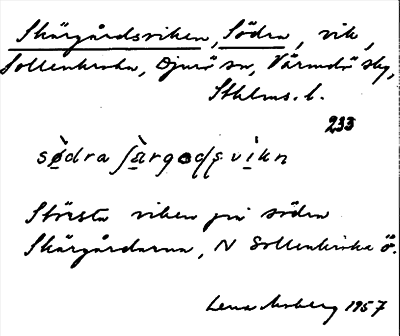 Skärgårdsviken, Södra, vik,
Sollenkroka, Djurö sn, Värmdö skg,
Sthlms. l.
233
sø̀dra ʃàrgodsvìkn
Största viken på södra
Skärgårdarna, N Sollenkroka ö.
Lena Moberg 1957